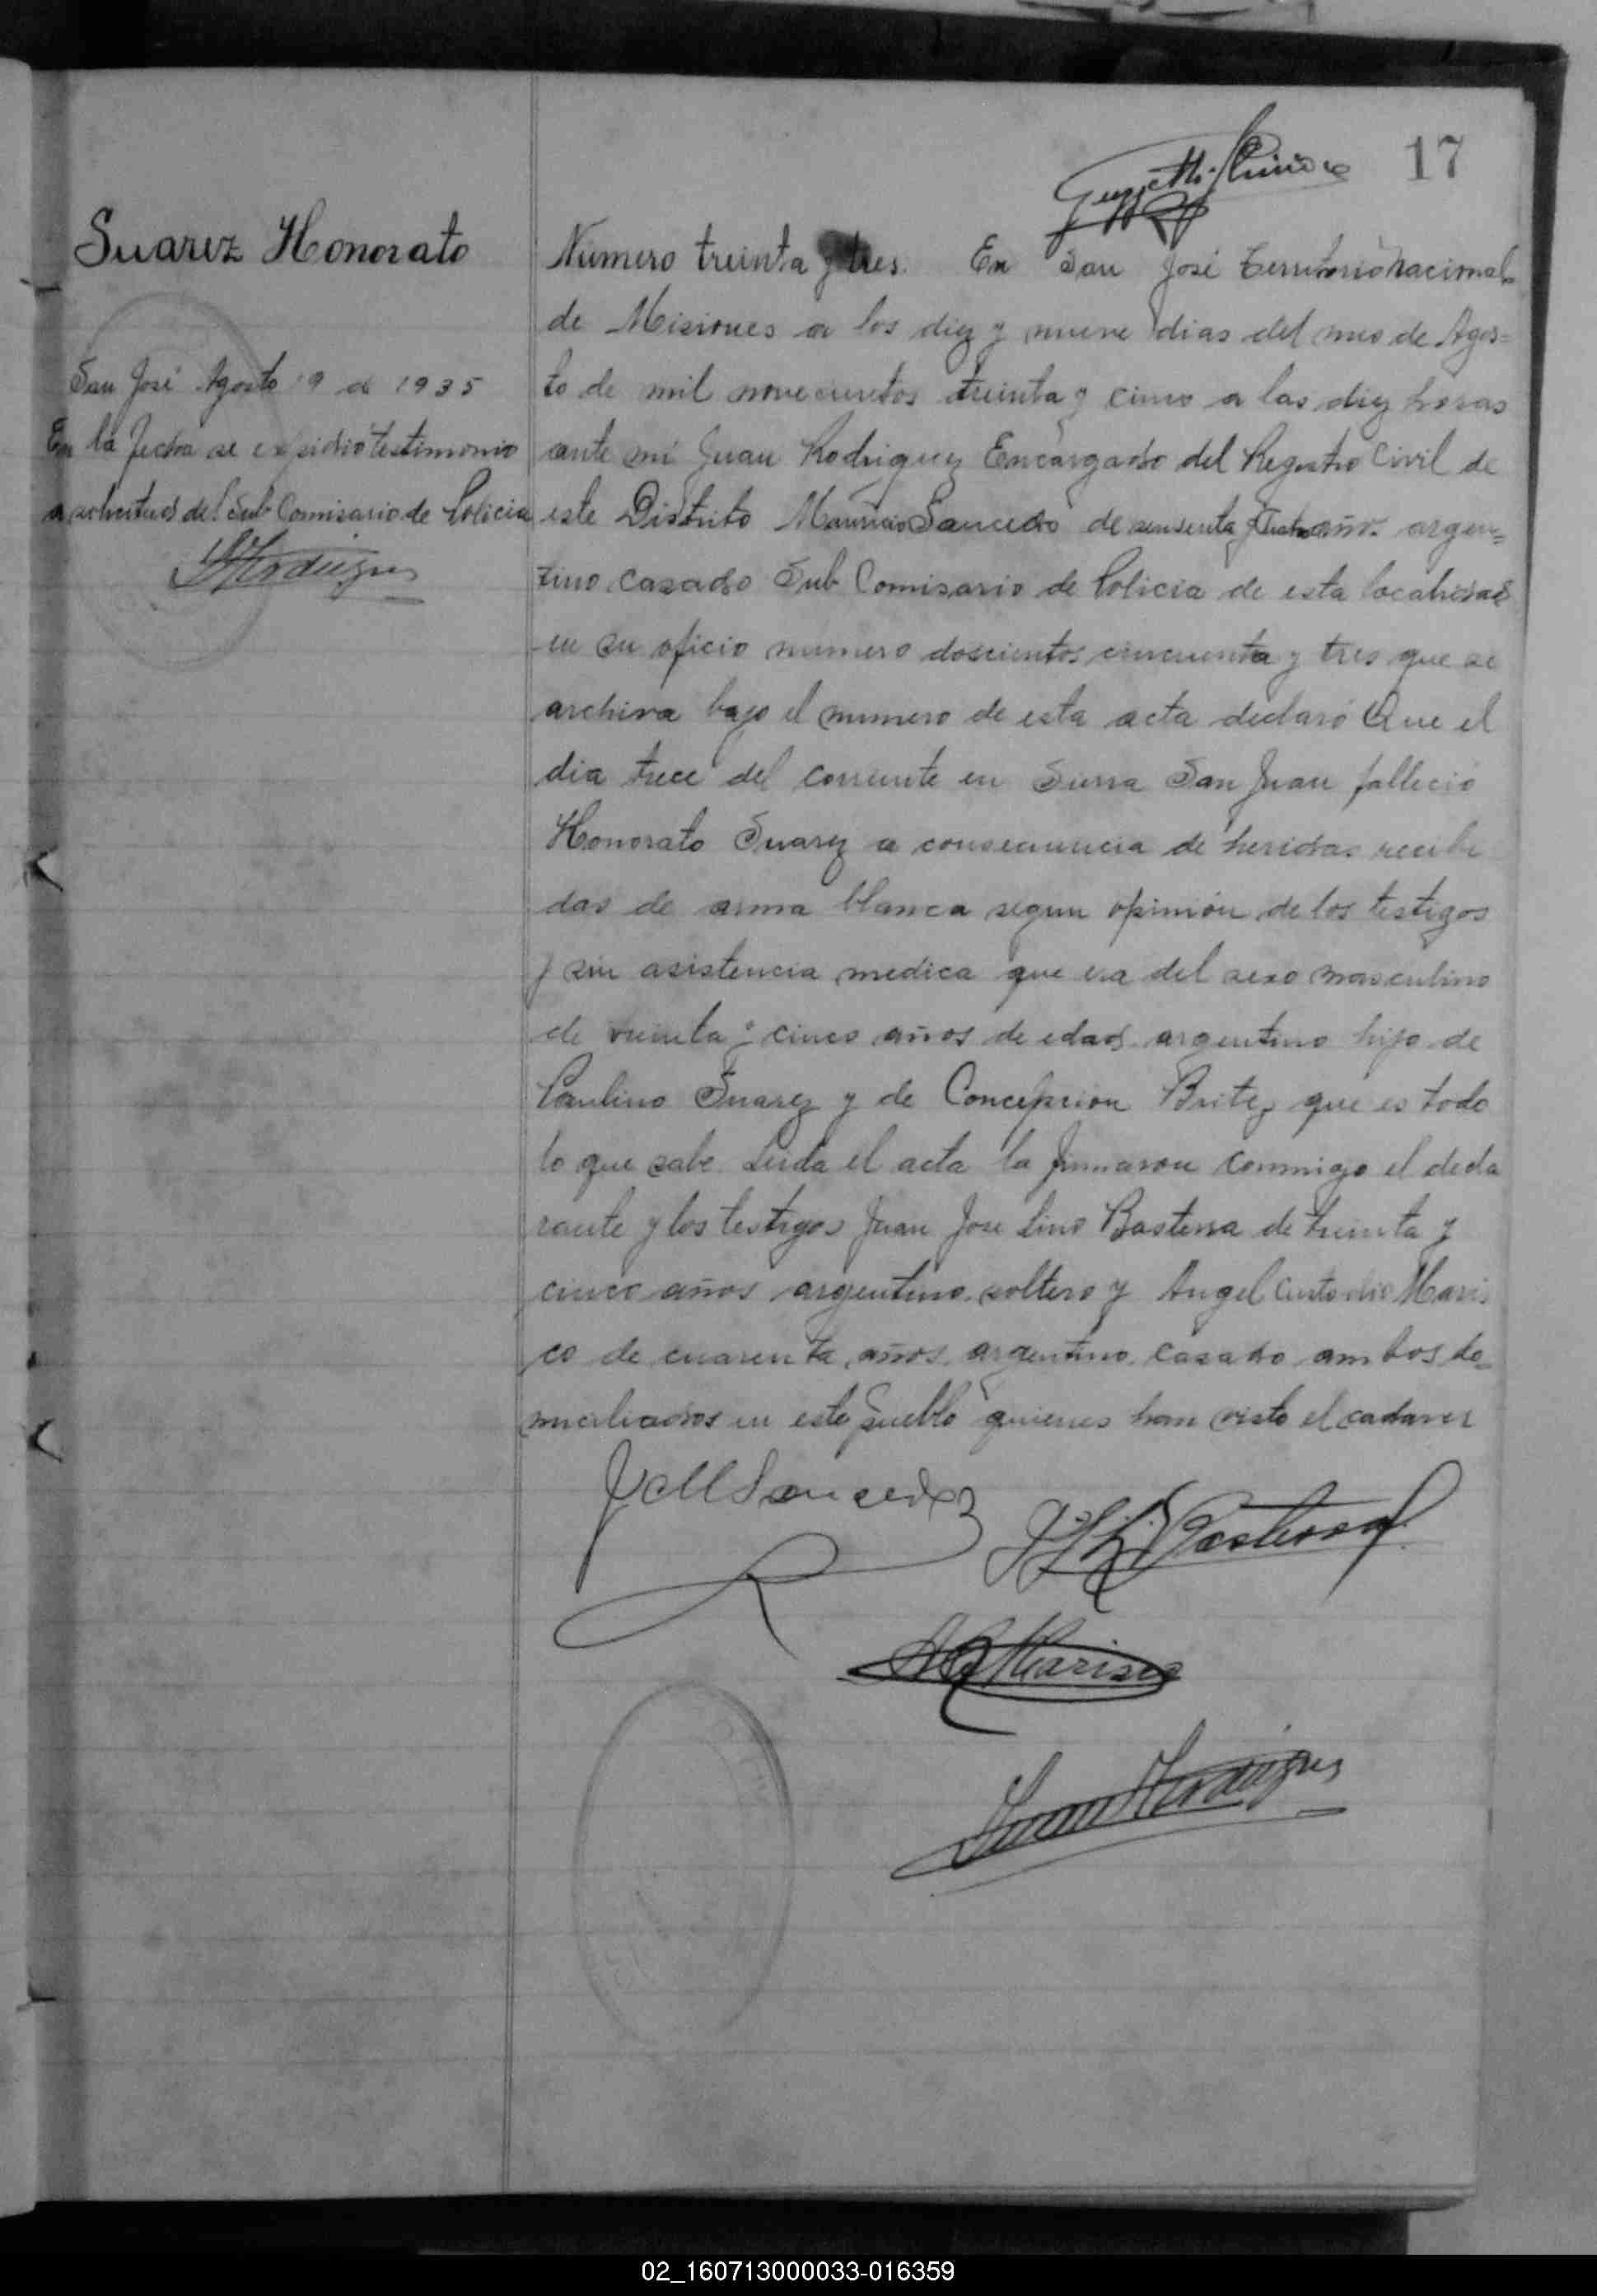 17
Suarez Honorato
San José Agosto 19 de 1935
En la fecha se expidió testimonio
a solicitud del Sub Comisario de Policia
Rodriguez
Número treinta y tres. En San José Territorio nacional
de Misiones a los diez y nueve dias del mes de Agos=
to de mil novecientos treinta y cinco a las diez horas
ante mi Juan Rodriguez Encargado del Registro Civil de
este Distrito Mauricio Saucedo de sensenta y años argen=
tino casado Sub Comisario de Policia de esta localidad
en su oficio numero doscientos cincuenta y tres que se
archiva bajo el numero de esta acta declaró Que el
dia trece del corriente en Sierra San Juan falleció
Honorato Suarez a consecuencia de heridas recibi
das de arma blanca segun opinión de los testigos
y sin asistencia medica que era del sexo masculino
de y cinco años de edad argentino hijo de
Paulino Suarez y de Concepcion Britez que es todo
lo que sabe Leida el acta la firmaron conmigo el decla
rante y los testigos Juan Jose Lino Basterra de treinta y
cinco años argentino soltero y Angel Custodio Maris
co de cuarenta años argentino casado ambos do=
miciliados en este pueblo quienes han visto el cadaver
Saucedo
J. J. L. Basterra
A C Marisco
Juan Rodriguez
02_160713000033-016359